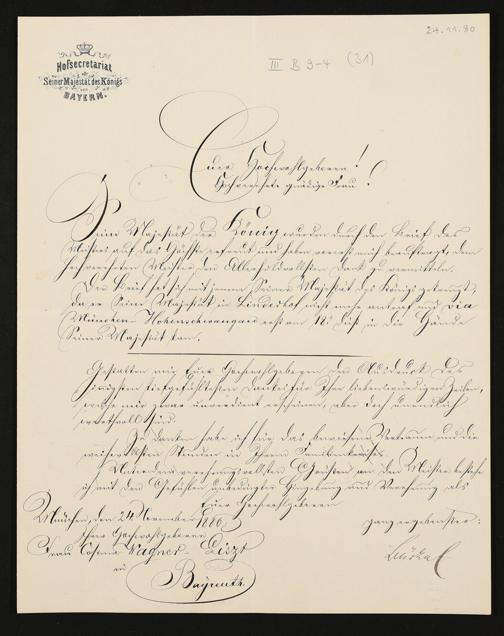 24.11.80
III B 9-4 (31)
Hofsecretariat
Seiner Majestät des Königs
von
BAYERN.
Euer Hochwohlgeboren!
Hochverehrte gnädige Frau!
Seine Majestät der König wurden durch den Brief des
Meisters auf das Höchste erfreut und haben mich beauftragt, dem
hochverehrten Meister den Allerhuldvollsten Dank zu vermitteln.
Der Brief hat sich mit jenem Seiner Majestät des Königs gekreuzt,
da er Seine Majestät in Linderhof nicht mehr antraf und via
München-Hohenschwangau erst am 18. dieß in die Hände
Seiner Majestät kam.
Gestatten mir Euer Hochwohlgeboren den Ausdruck des
innigsten tiefgefühltesten Dankes für Ihre liebenswürdigen Zeilen,
welche mir zwar unverdient erscheinen, aber doch unendlich
werthvoll sind.
Zu danken habe ich für das bewiesene Vertrauen und die
Stunden in Ihrem Familienkreise.
Unter den verehrungsvollsten Grüssen an den Meister
ich mit den Gefühlen Hingebung und Verehrung als
Euer Hochwohlgeboren
München, den 24. November 1880.
ganz ergebenster:
Ihrer Hochwohlgeboren
Frau Cosima Wagner-Liszt
in
Bayreuth.